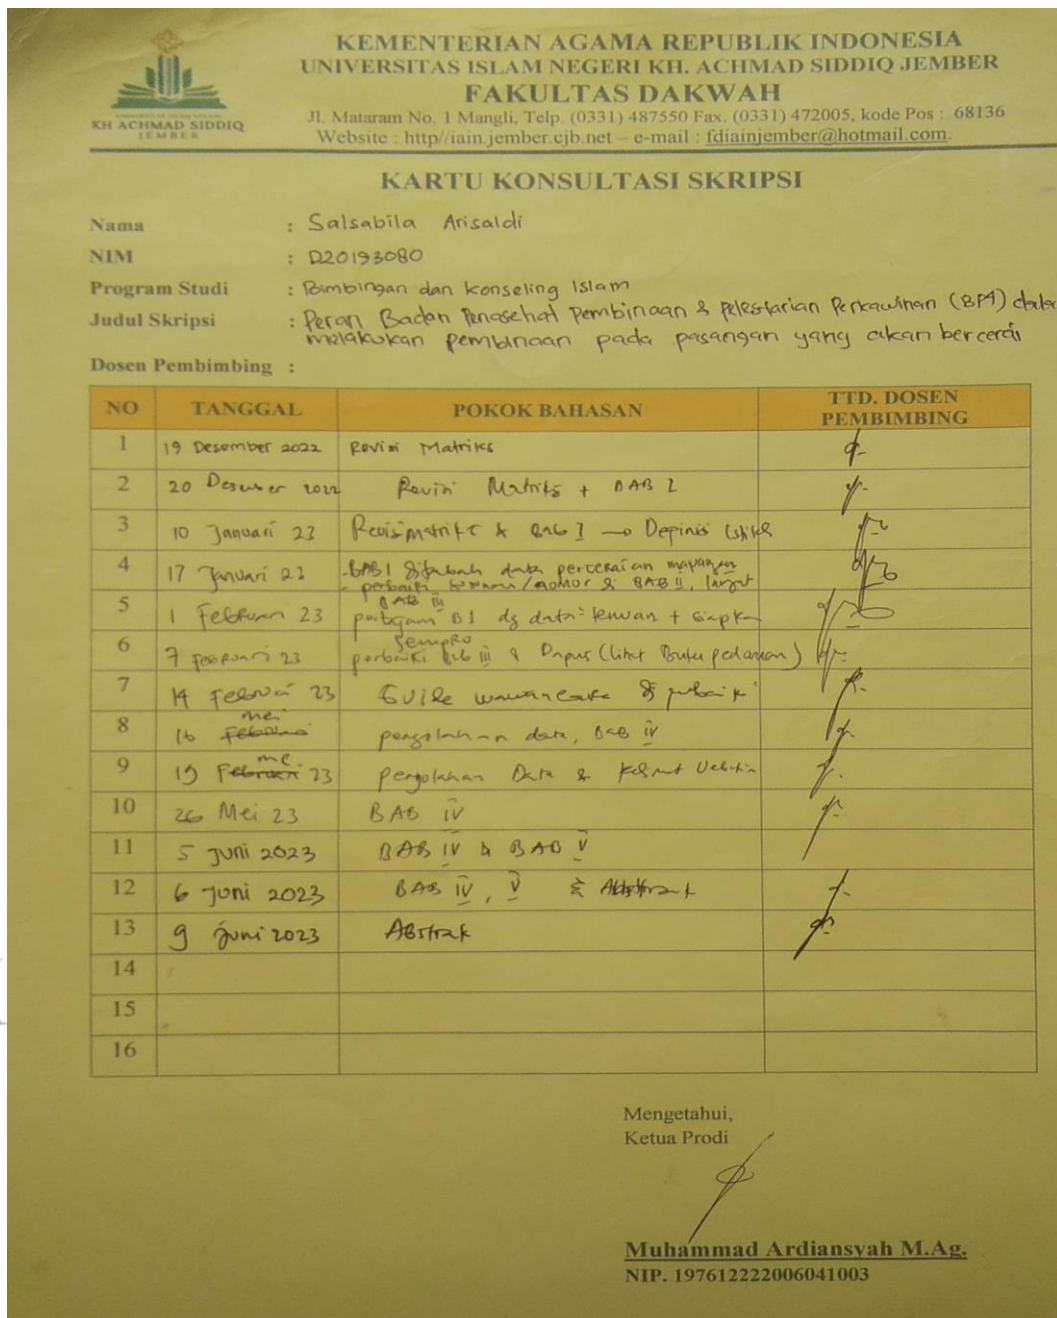 KEMENTERIAN AGAMA REPUBLIK INDONESIA
UNIVERSITAS ISLAM NEGERI KH. ACHMAD SIDDIQ JEMBER
FAKULTAS DAKWAH
Jl. Mataram No. 1 Mangli, Telp. (0331) 487550 Fax. (0331) 472005, kode Pos : 68136
Website : http//iain.jember.cjb.net – e-mail : fdiainjember@hotmail.com.
KH ACHMAD SIDDIQ
JEMBER
KARTU KONSULTASI SKRIPSI
Nama : Salsabila Arisaldi
NIM : D20193080
Program Studi : Bimbingan dan Konseling Islam
Judul Skripsi : Peran Badan Penasehat Pembinaan & Pelestarian Perkawinan (BP4)
melakukan pembinaan pada pasangan yang akan bercerai
Dosen Pembimbing :
NO TANGGAL POKOK BAHASAN TTD. DOSEN PEMBIMBING
1 19 Desember 2022 Revisi Matriks
2 20 Desember 2022 Revisi Matriks + BAB I
3 10 Januari 23 Revisi matriks & Bab I → Definisi istilah
4 17 Januari 23 - BAB I ditambah data perceraian
- perbaiki /nomor & BAB II, lanjut
BAB III
5 1 Februari 23 pertajam B1 dg data temuan + siapkan
Sempro
6 7 Februari 23 perbaiki Bab III & Dapus (lihat Buku pedoman)
7 14 Februari 23 Guide wawancara
8 16 Mei pengolahan data, Bab IV
9 19 Mei 23 pengolahan Data &
10 26 Mei 23 BAB IV
11 5 Juni 2023 BAB IV & BAB V
12 6 Juni 2023 BAB IV, V & Abstrak
13 9 Juni 2023 Abstrak
14
15
16
Mengetahui,
Ketua Prodi
Muhammad Ardiansyah M.Ag.
NIP. 197612222006041003